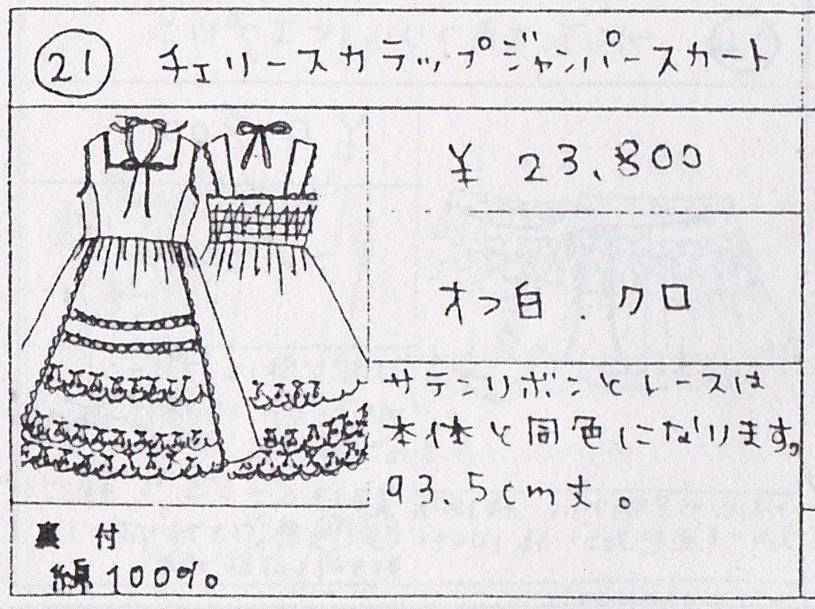 21 チェリースカラップジャンパースカート
¥ 23、800
オフ白．クロ
サテンリボンとレースは
本体と同色になります。
93.5cm丈。
裏付
綿100%